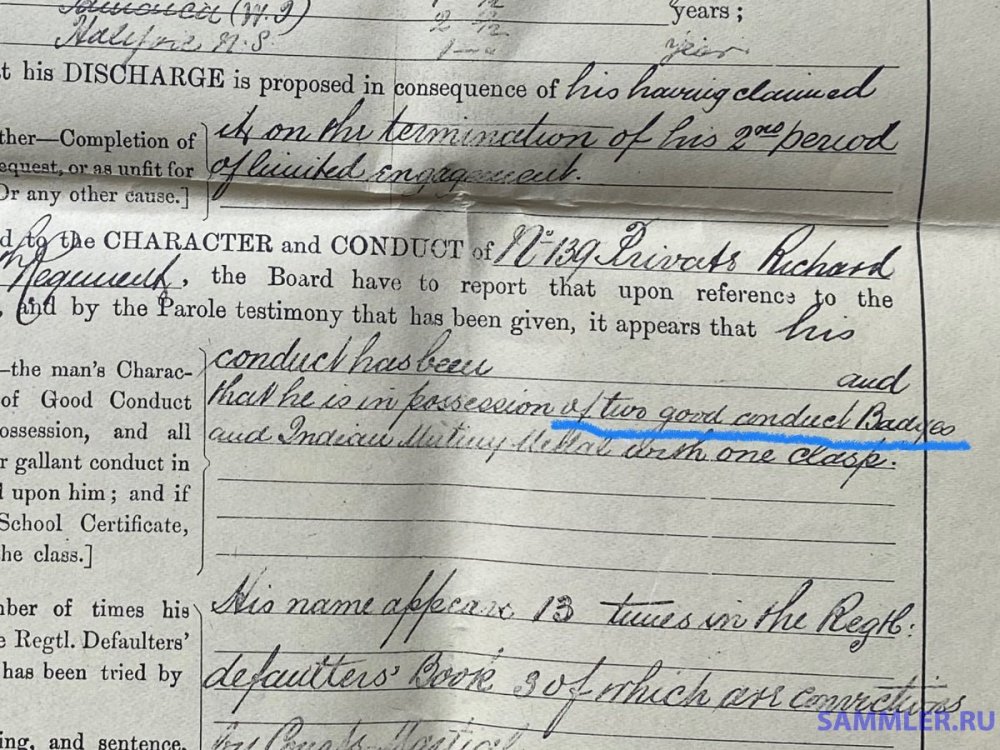 Jamaica (W.I) 2 2/12 years;
Halifax N.S. 1 — " year
t his DISCHARGE is proposed in consequence of his having claimed
ther—Completion of it on the termination of his 2nd period
equest, or as unfit for of limited engagement.
Or any other cause.]
d to the CHARACTER and CONDUCT of No 139 Private Richard
Regiment, the Board have to report that upon reference to the
, and by the Parole testimony that has been given, it appears that his
—the man's Charac- conduct has been and
of Good Conduct that he is in possession of two good conduct Badges
ossession, and all and Indian Mutiny Medal with one clasp.
r gallant conduct in
l upon him; and if
School Certificate,
he class.]
mber of times his His name appears 13 times in the Regtl:
e Regtl. Defaulters' defaulters' Book 3 of which are convictions
has been tried by
ing, and sentence, by Court Martial
SAMMLER.RU